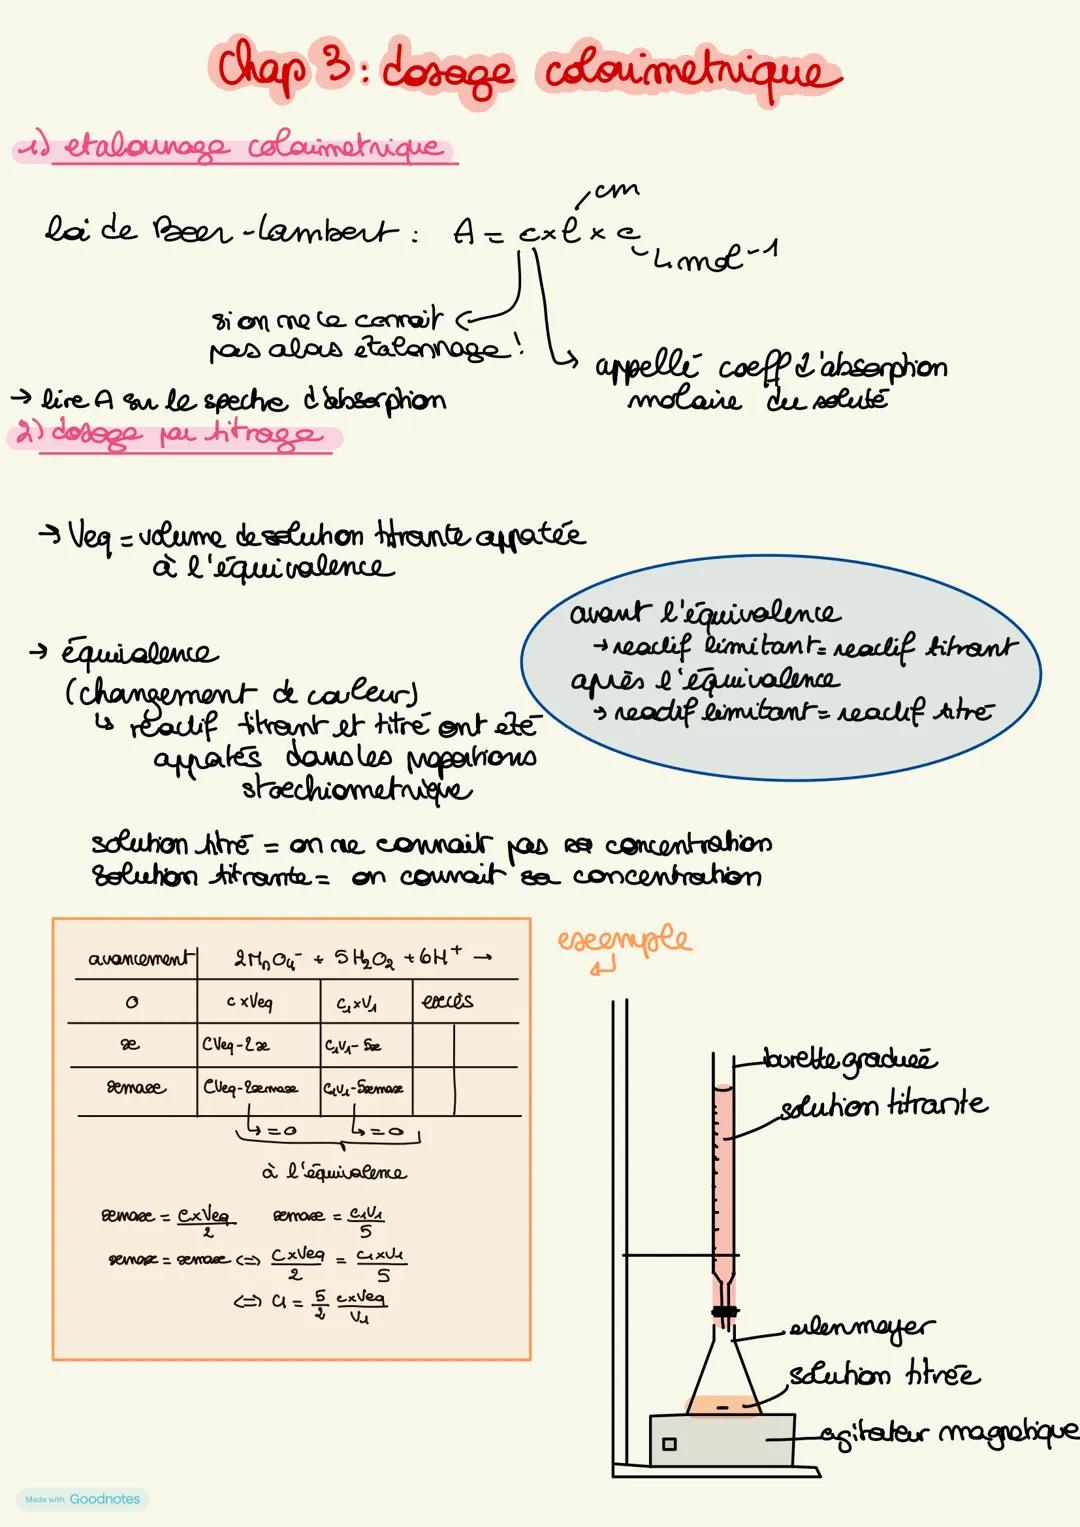 Chap 3 : dosage colorimetrique
1) etalounage colorimetrique
cm
loi de Beer-Lambert : A = ε x l x c
L.mol-1
si on ne le connait
pas alors étalonnage !
appellé coeff d'absorption
molaire du soluté
→ lire A sur le spectre d'absorption
2) dosage par titrage
→ Veq = volume de solution titrante apportée
à l'équivalence
avant l'équivalence
→ reactif limitant = reactif titrant
après l'équivalence
→ reactif limitant = reactif titré
→ équivalence
(changement de couleur)
↳ réactif titrant et titré ont été
apportés dans les proportions
stoechiometrique
solution titré = on ne connait pas sa concentration
solution titrante = on connait sa concentration
exemple
avancement 2MnO4- + 5H2O2 + 6H+ →
0 c x Veq C1 x V1 excès
x CVeq - 2x C1V1 - 5x
xmax CVeq - 2xmax C1V1 - 5xmax
↳ = 0 ↳ = 0
à l'équivalence
xmax = CxVeq / 2 xmax = C1V1 / 5
xmax = xmax <=> CxVeq / 2 = C1xV1 / 5
<=> C1 = 5/2 CxVeq / V1
burette graduée
solution titrante
erlenmeyer
solution titrée
agitateur magnétique
Made with Goodnotes